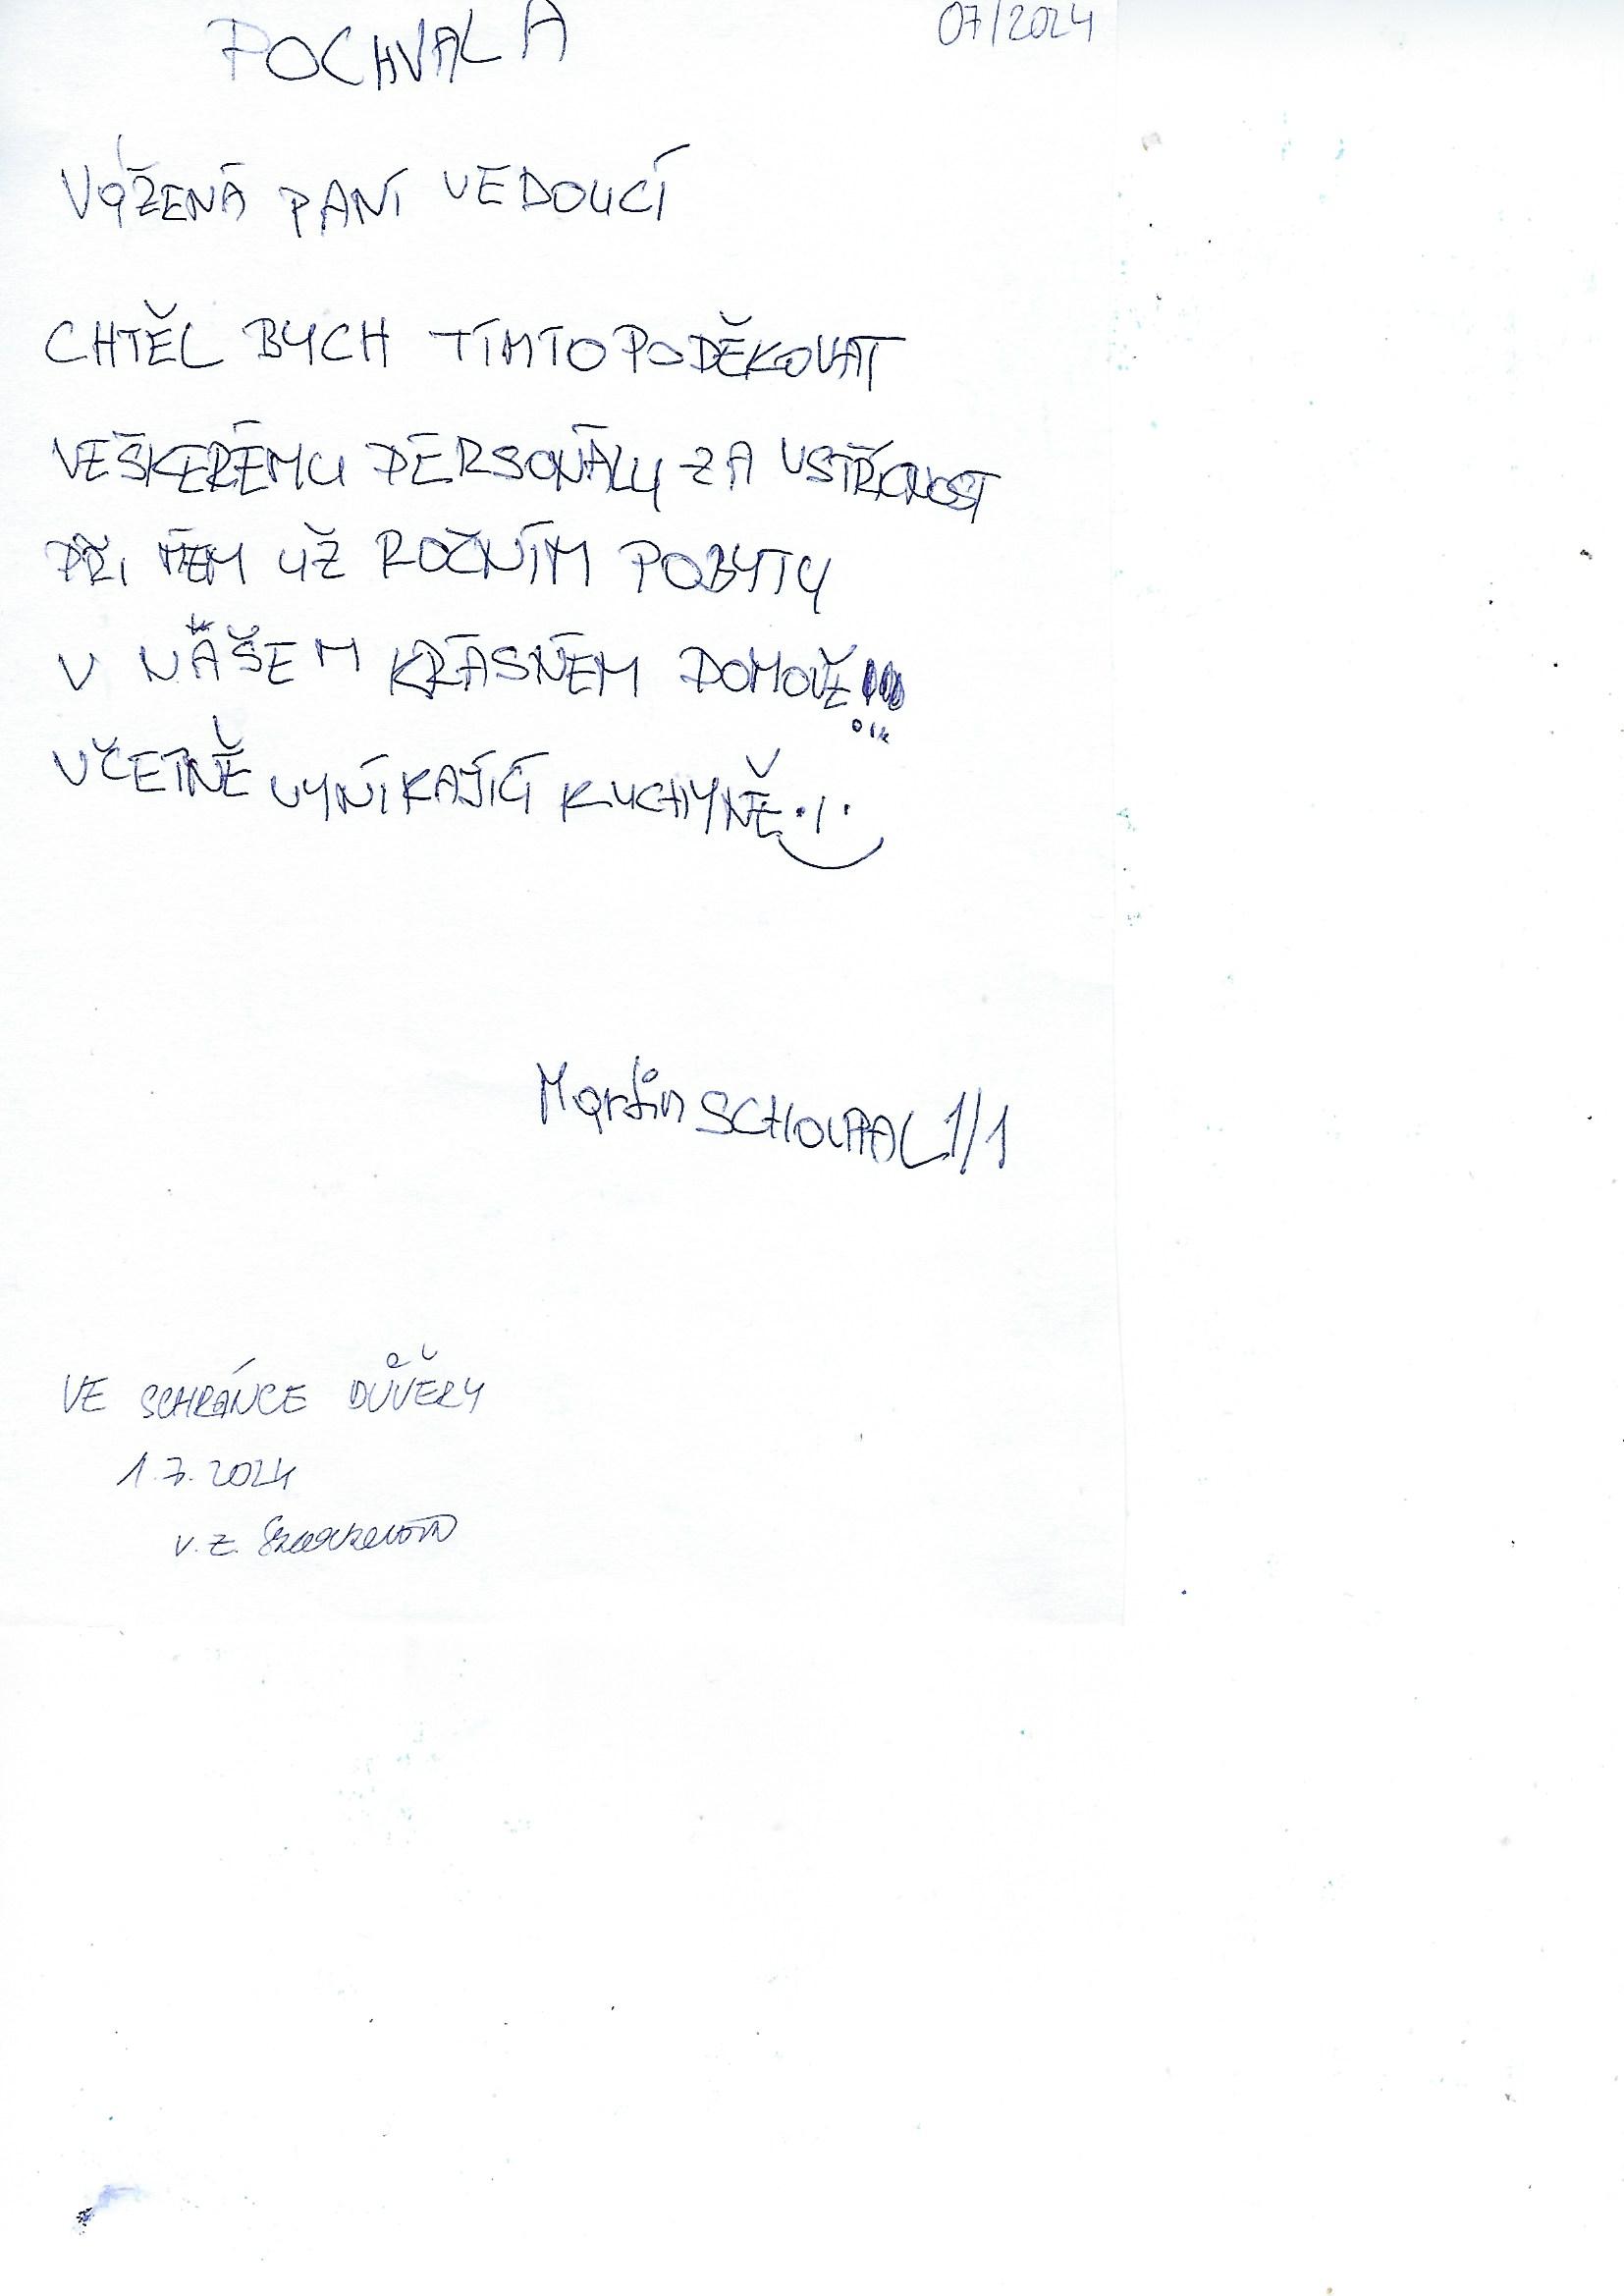 POCHVALA 07/2024
VÁŽENÁ PANÍ VEDOUCÍ
CHTĚL BYCH TÍMTO PODĚKOVAT
VEŠKERÉMU PERSONÁLU ZA VSTŘÍCNOST
PŘI MÉM UŽ ROČNÍM POBYTU
V NÁŠEM KRÁSNÉM DOMOVĚ!!!
VČETNĚ VYNÍKAJÍCÍ KUCHYNĚ
Martin SCHOUPAL 1/1
VE SCHRÁNCE DŮVĚRY
1.7.2024
V.Z.